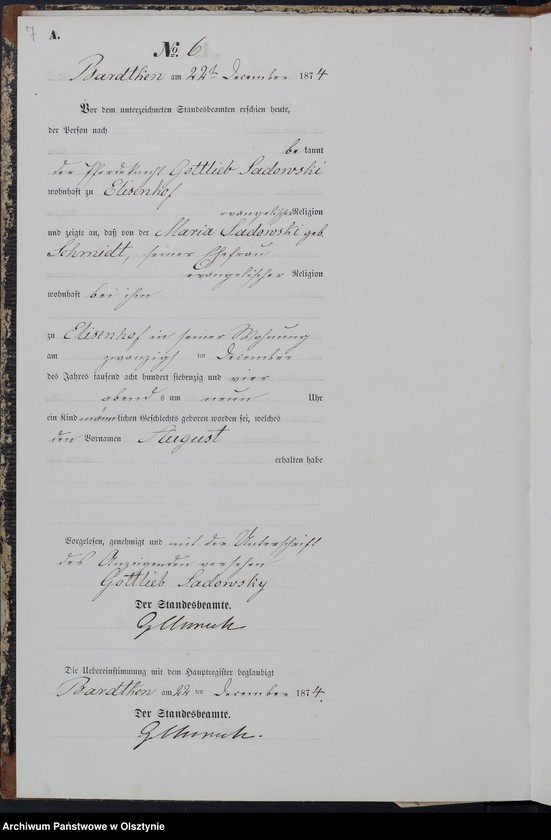 7
A.
No. 6
Bardthen am 22ten December 1874
Vor dem unterzeichneten Standesbeamten erschien heute,
der Person nach
be kannt
der Pferdeknecht Gottlieb Sadowski
wohnhaft zu Elisenhof
evangelischer Religion
und zeigte an, daß von der Maria Sadowski geb.
Schmidt, seiner Ehefrau
evangelischer Religion
wohnhaft bei ihm
zu Elisenhof in seiner Wohnung
am zwanzigsten December
des Jahres tausend acht hundert siebenzig und vier
abends um neun Uhr
ein Kind männlichen Geschlechts geboren worden sei, welches
den Vornamen August
erhalten habe
Vorgelesen, genehmigt und mit der Unterschrift
des Anzeigenden versehen
Gottlieb Sadowsky
Der Standesbeamte.
Die Uebereinstimmung mit dem Hauptregister beglaubigt
Bardthen am 22 ten December 1874.
Der Standesbeamte.
Archiwum Państwowe w Olsztynie